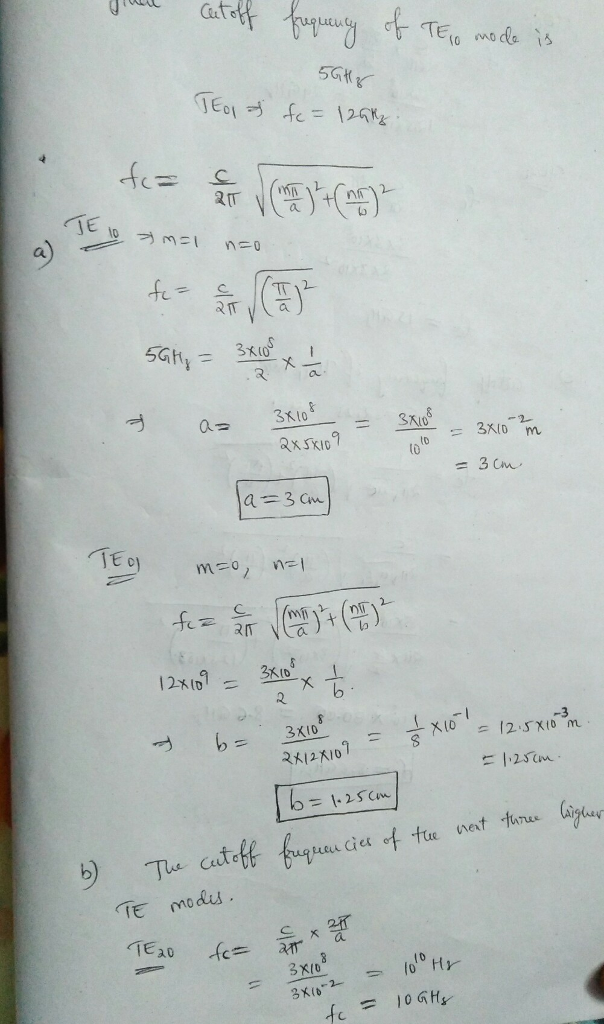 cutoff frequency of TE10 mode is
5GHz
TE01 ⇒ fc = 12GHz.
fc = c/2π √((mπ/a)² + (nπ/b)²)
a) TE10 ⇒ m=1 n=0
fc = c/2π √((π/a)²)
5GHz = 3×10⁸/2 × 1/a
⇒ a = 3×10⁸/2×5×10⁹ = 3×10⁸/10¹⁰ = 3×10⁻² m
= 3 cm.
a = 3 cm
TE01 m=0, n=1
fc = c/2π √((mπ/a)² + (nπ/b)²)
12×10⁹ = 3×10⁸/2 × 1/b.
⇒ b = 3×10⁸/2×12×10⁹ = 1/8 ×10⁻¹ = 12.5×10⁻³ m.
= 1.25cm.
b = 1.25 cm
b) The cutoff frequencies of the next three higher
TE modes.
TE20 fc = c/2π × 2π/a
= 3×10⁸/3×10⁻² = 10¹⁰ Hz
fc = 10 GHz